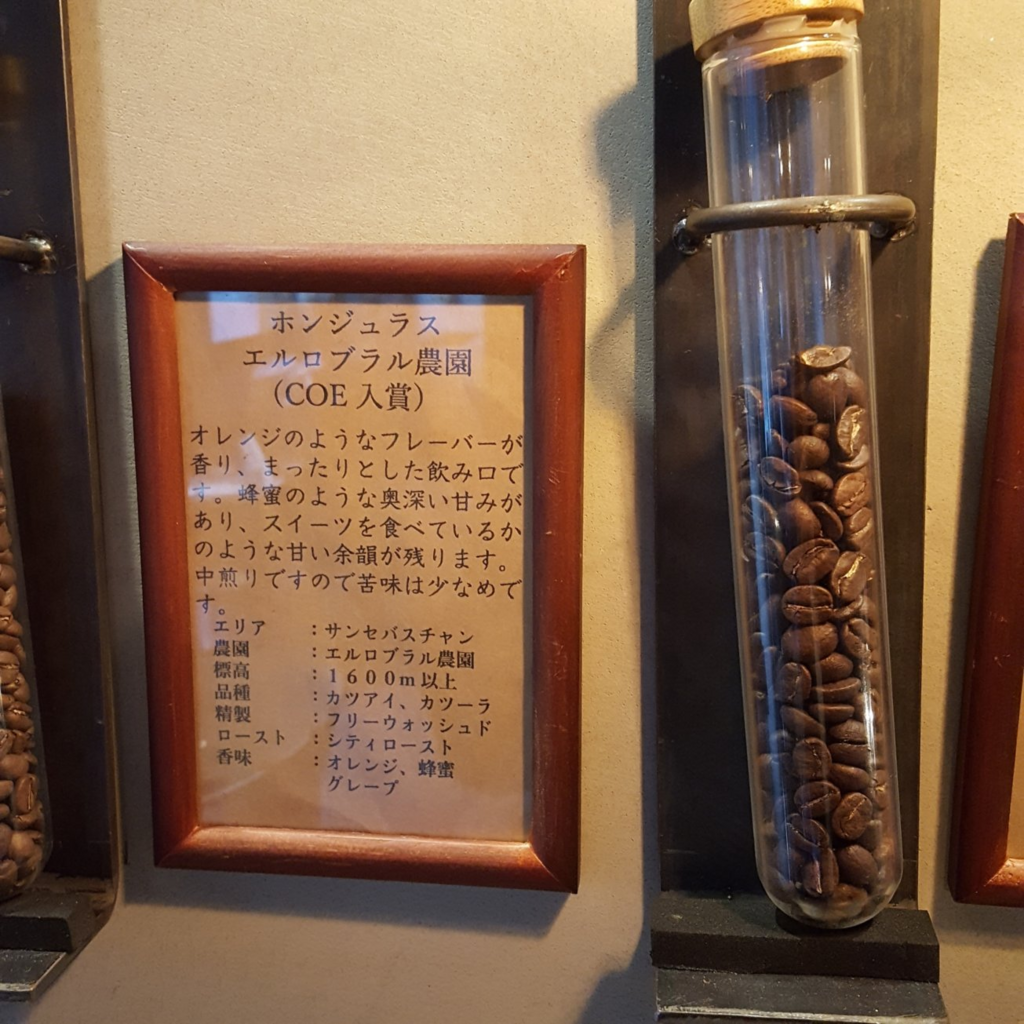 ホンジュラス
エルロブラル農園
（COE 入賞）
オレンジのようなフレーバーが
香り、まったりとした飲み口で
す。蜂蜜のような奥深い甘みが
あり、スイーツを食べているか
のような甘い余韻が残ります。
中煎りですので苦味は少なめで
す。
エリア ：サンセバスチャン
農園 ：エルロブラル農園
標高 ：１６００ｍ以上
品種 ：カツアイ、カツーラ
精製 ：フリーウォッシュド
ロースト ：シティロースト
香味 ：オレンジ、蜂蜜
グレープ